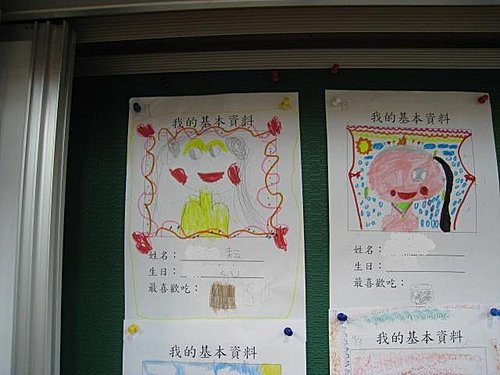 我的基本資料
姓名：
生日：
最喜歡吃：
我的基本資料
姓名：
生日：
最喜歡吃：
我的基本資料
我的基本資料